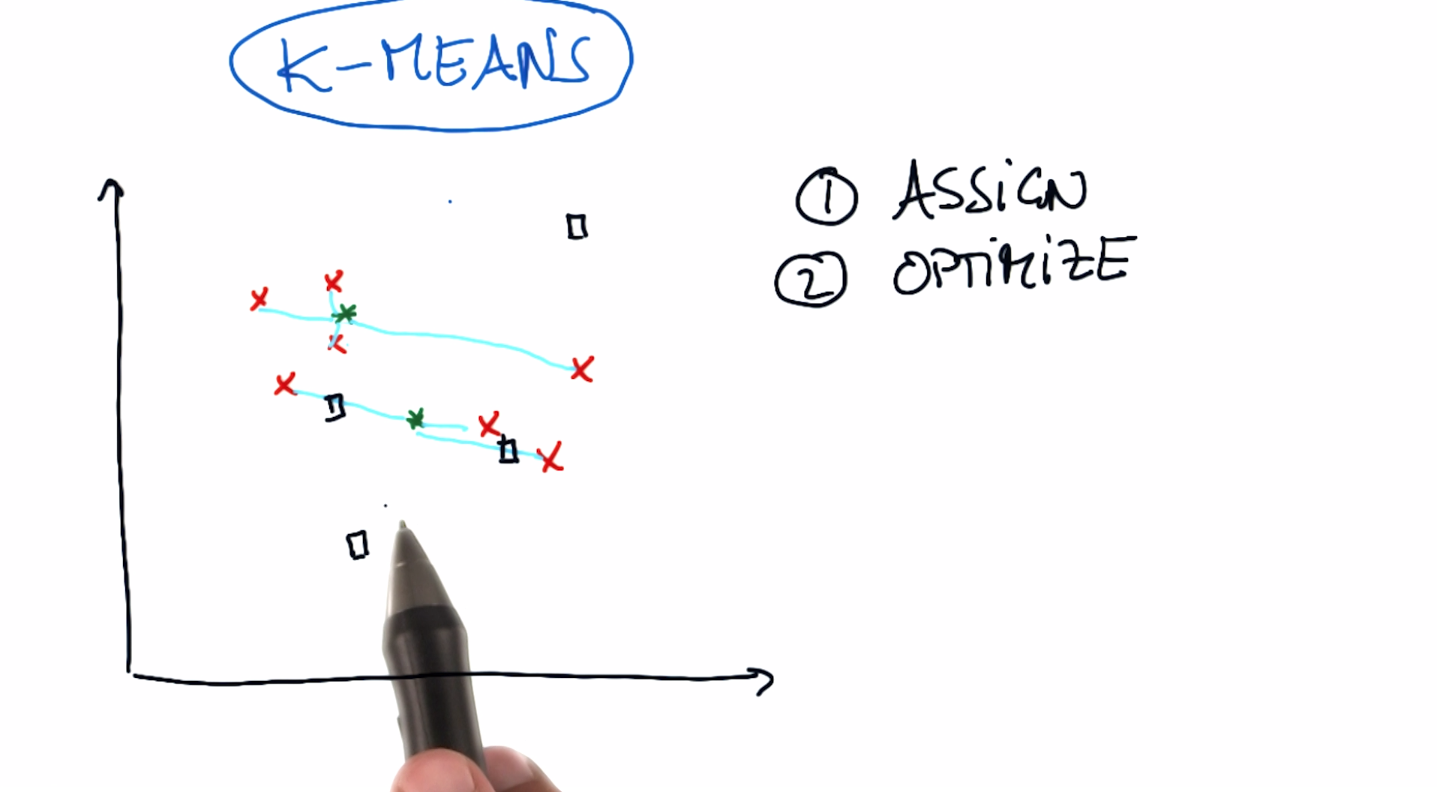 K-MEANS
① ASSiGN
② OPTiMiZE